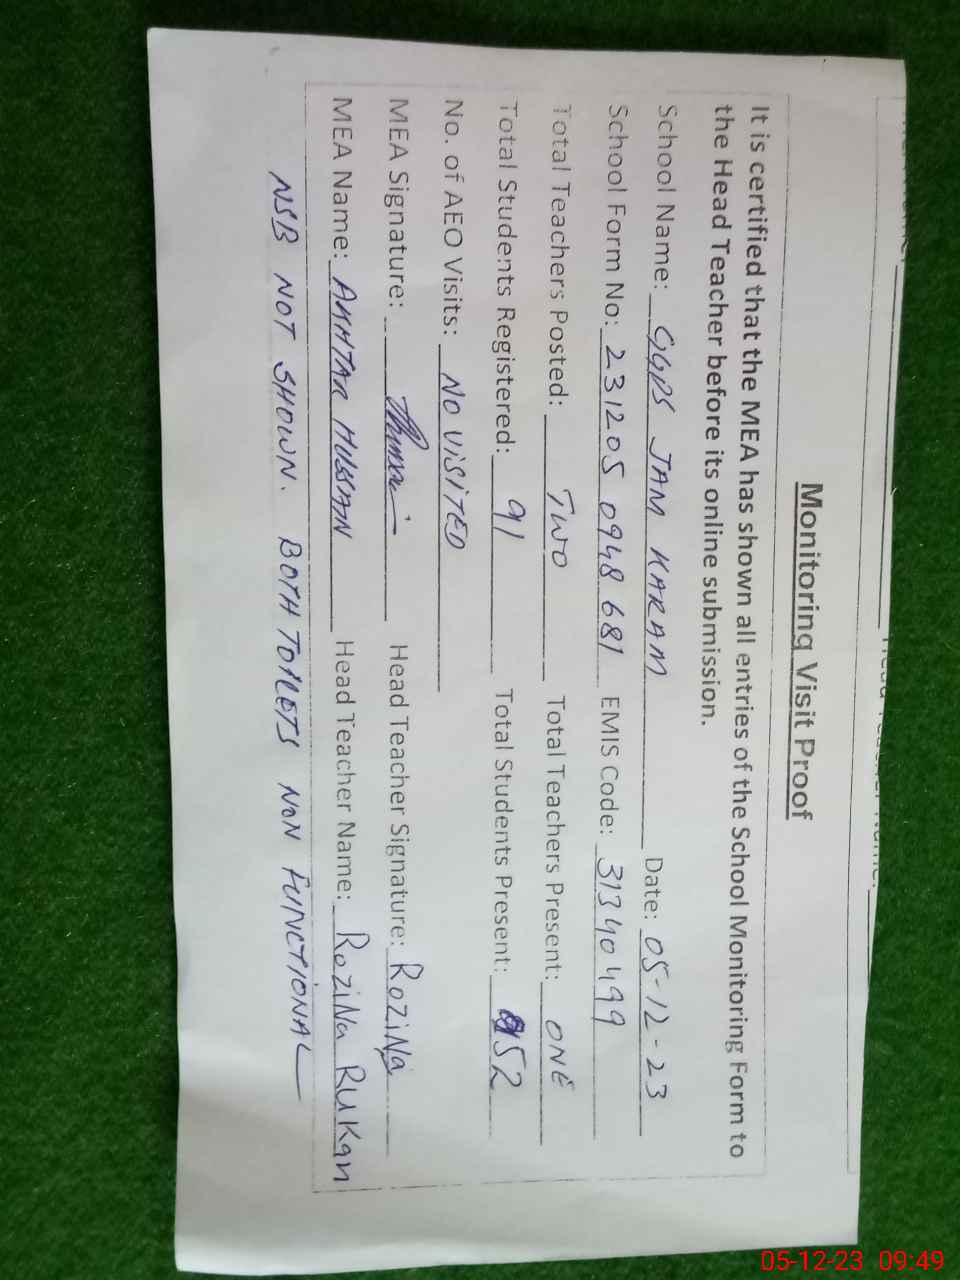 Monitoring Visit Proof
It is certified that the MEA has shown all entries of the School Monitoring Form to
the Head Teacher before its online submission.
School Name: GGPS JAM KARAM Date: 05-12-23
School Form No: 2312050948681 EMIS Code: 31340499
Total Teachers Posted: TWO Total Teachers Present: ONE
Total Students Registered: 91 Total Students Present: 52
No. of AEO Visits: NO VISITED
MEA Signature: Head Teacher Signature: RoZiNa
MEA Name: AKHTAR HUSSAIN Head Teacher Name: RoZiNa RuKan
NSB NOT SHOWN. BOTH TOILETS NON FUNCTIONAL
05-12-23 09:49